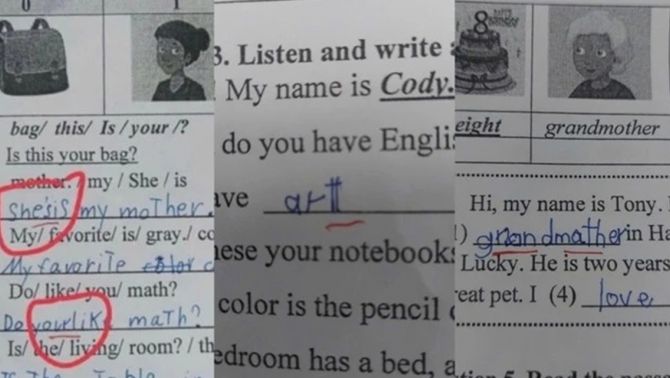 bag/ this/ Is / your /?
Is this your bag?
mother. / my / She / is
She'sis my moTher.
My/ favorite/ is/ gray./ co
My favoriTe color c
Do/ like/ you/ math?
Do yourlike maTh?
Is/ the/ living/ room? / th
Is The Table in
3. Listen and write
My name is Cody.
do you have Englis
ave artt
hese your notebooks
color is the pencil
edroom has a bed, a
8
BIRTHDAY
eight grandmother
Hi, my name is Tony.
) grandmather in Ha
Lucky. He is two years
reat pet. I (4) love